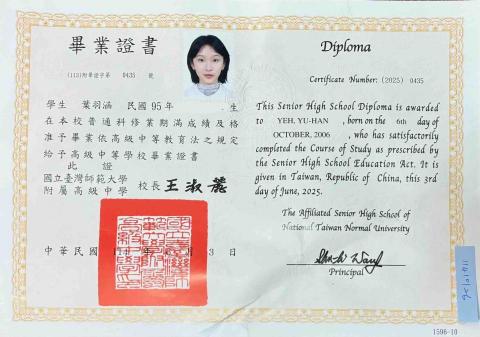 畢業證書
(113)附畢證字第 0435 號
學生 葉羽涵 民國 95年 生
在本校普通科修業期滿成績及格
准予畢業依高級中等教育法之規定
給予高級中等學校畢業證書
此證
國立臺灣師範大學
附屬高級中學 校長 王淑麗
中華民國 11 年 月 3 日
Diploma
Certificate Number: (2025) 0435
This Senior High School Diploma is awarded
to YEH, YU-HAN , born on the 6th day of
OCTOBER, 2006 , who has satisfactorily
completed the Course of Study as prescribed by
the Senior High School Education Act. It is
given in Taiwan, Republic of China, this 3rd
day of June, 2025.
The Affiliated Senior High School of
National Taiwan Normal University
Principal
1596-10